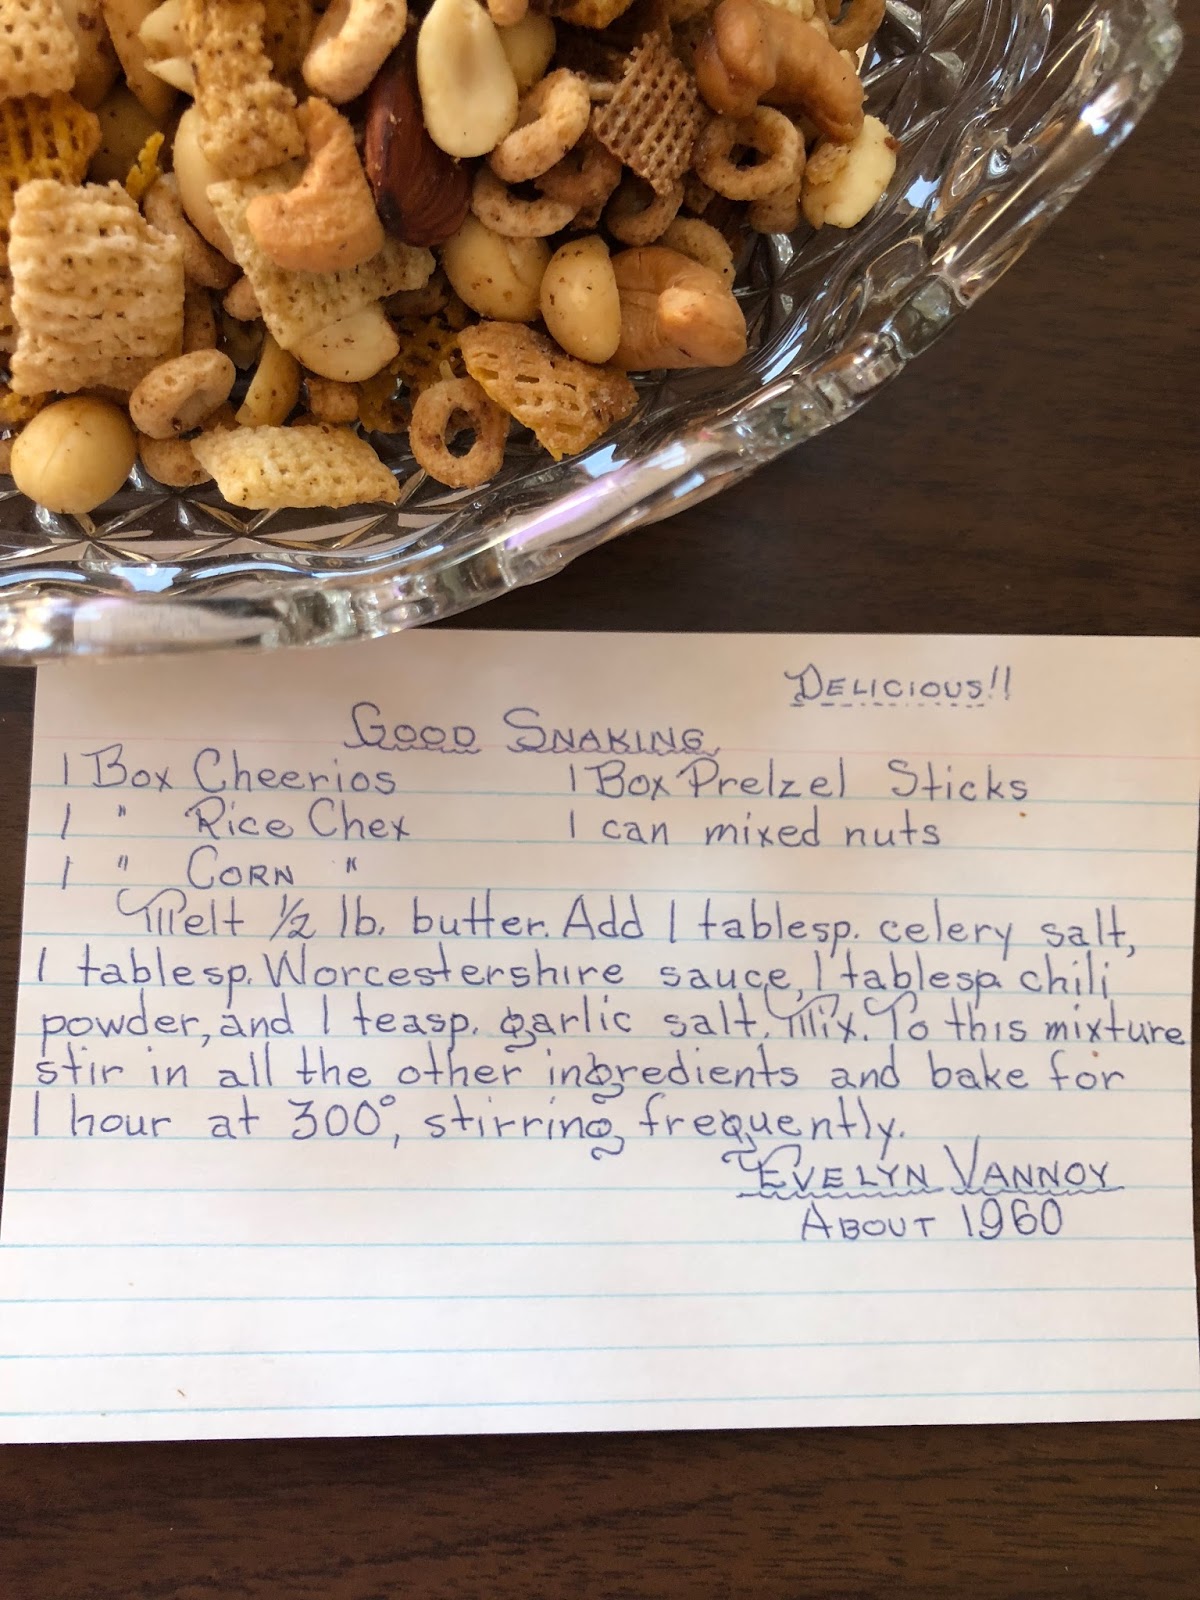 Delicious!!
Good Snaking
1 Box Cheerios 1 Box Pretzel Sticks
1 " Rice Chex 1 can mixed nuts
1 " Corn "
Melt 1/2 lb. butter. Add 1 tablesp. celery salt,
1 tablesp. Worcestershire sauce, 1 tablesp. chili
powder, and 1 teasp. garlic salt. Mix. To this mixture
stir in all the other ingredients and bake for
1 hour at 300°, stirring frequently.
Evelyn Vannoy
About 1960